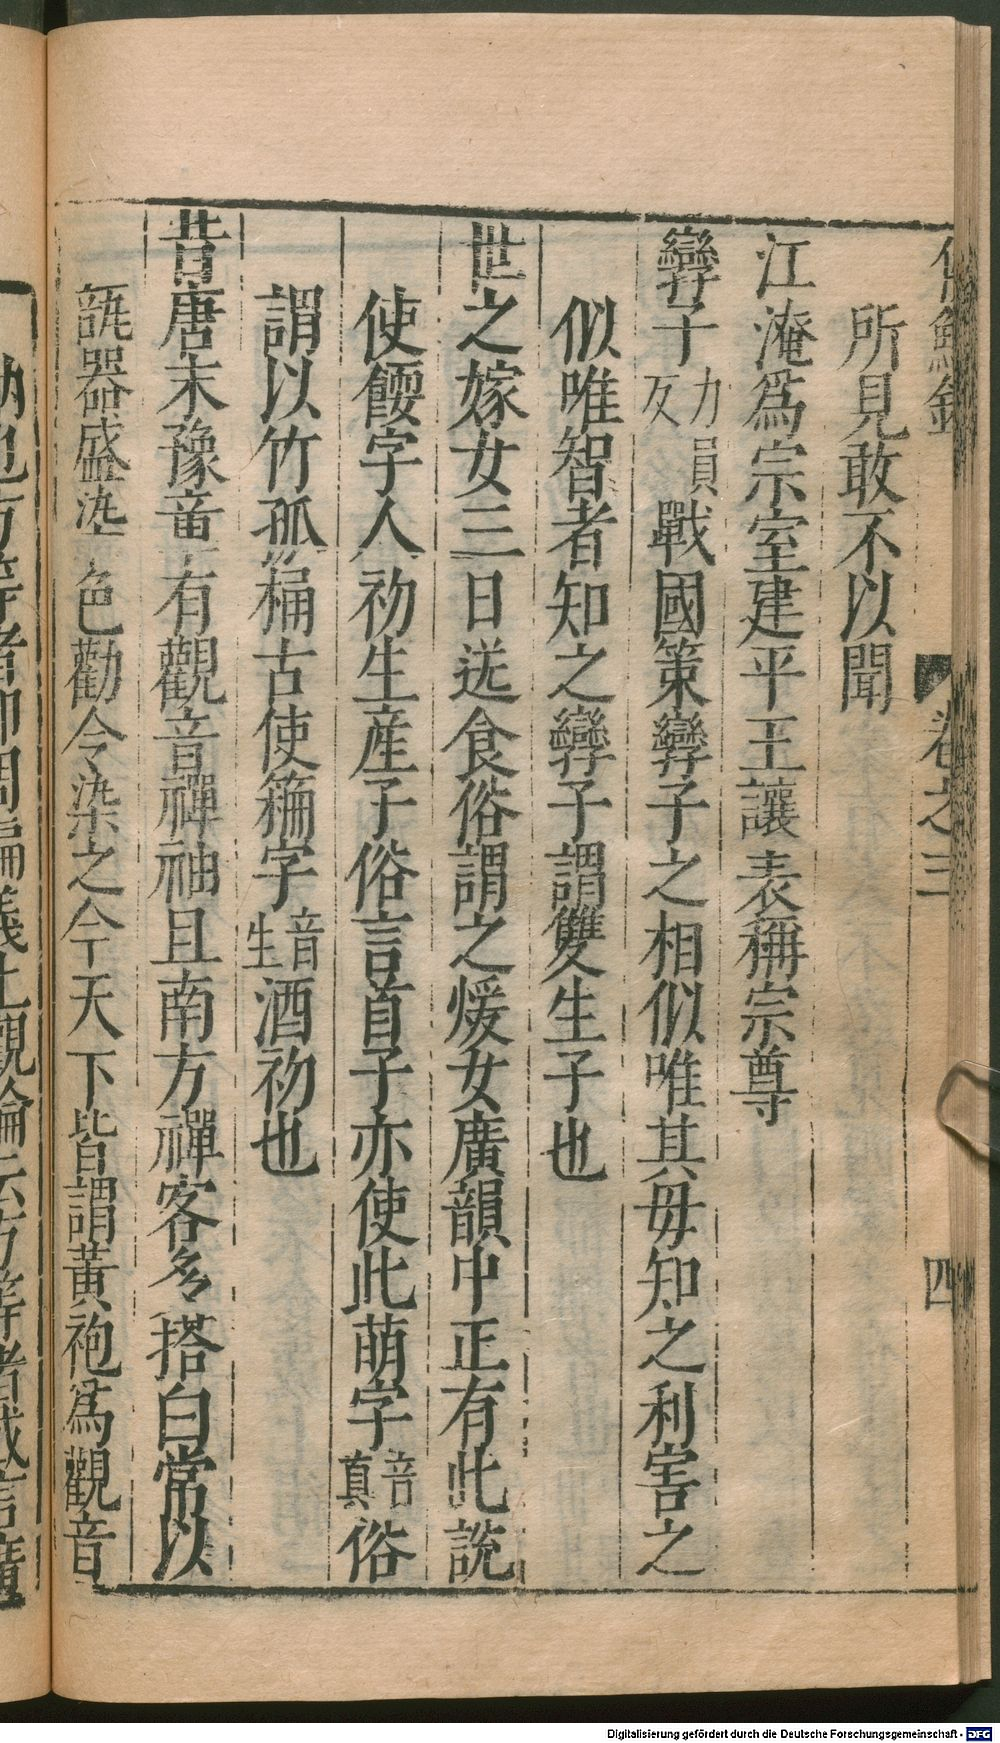 侯鯖錄 卷之三 四
所見敢不以聞
江淹爲宗室建平王讓表稱宗尊
孿子力員反戰國策孿子之相似唯其母知之利害之
似唯智者知之孿子謂雙生子也
世之嫁女三日送食俗謂之煖女廣韻中正有此說
使餪字人初生產子俗言首子亦使此萌字音真俗
謂以竹孤桶古使箍字音生酒初也
昔唐末豫章有觀音禪袖且南方禪客多搭白常以
瓿器盛染色勸令染之今天下皆謂黃袍爲觀音
Digitalisierung gefördert durch die Deutsche Forschungsgemeinschaft - DFG